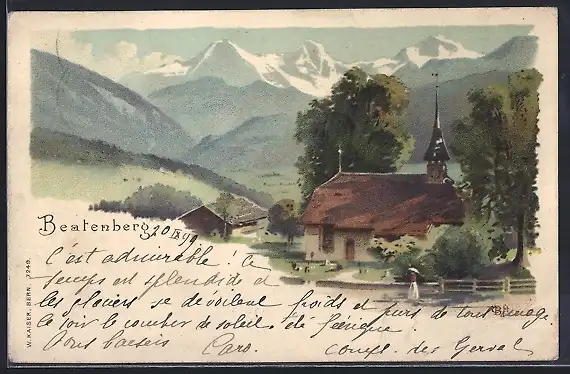 Beatenberg 20 IX 99
C'est admirable ! Ce
temps est splendide et
les glaciers se dévoilent froids et purs de tout nuage.
Le soir le coucher de soleil est féerique.
Bons baisers Caro.
W. KAISER, BERN.